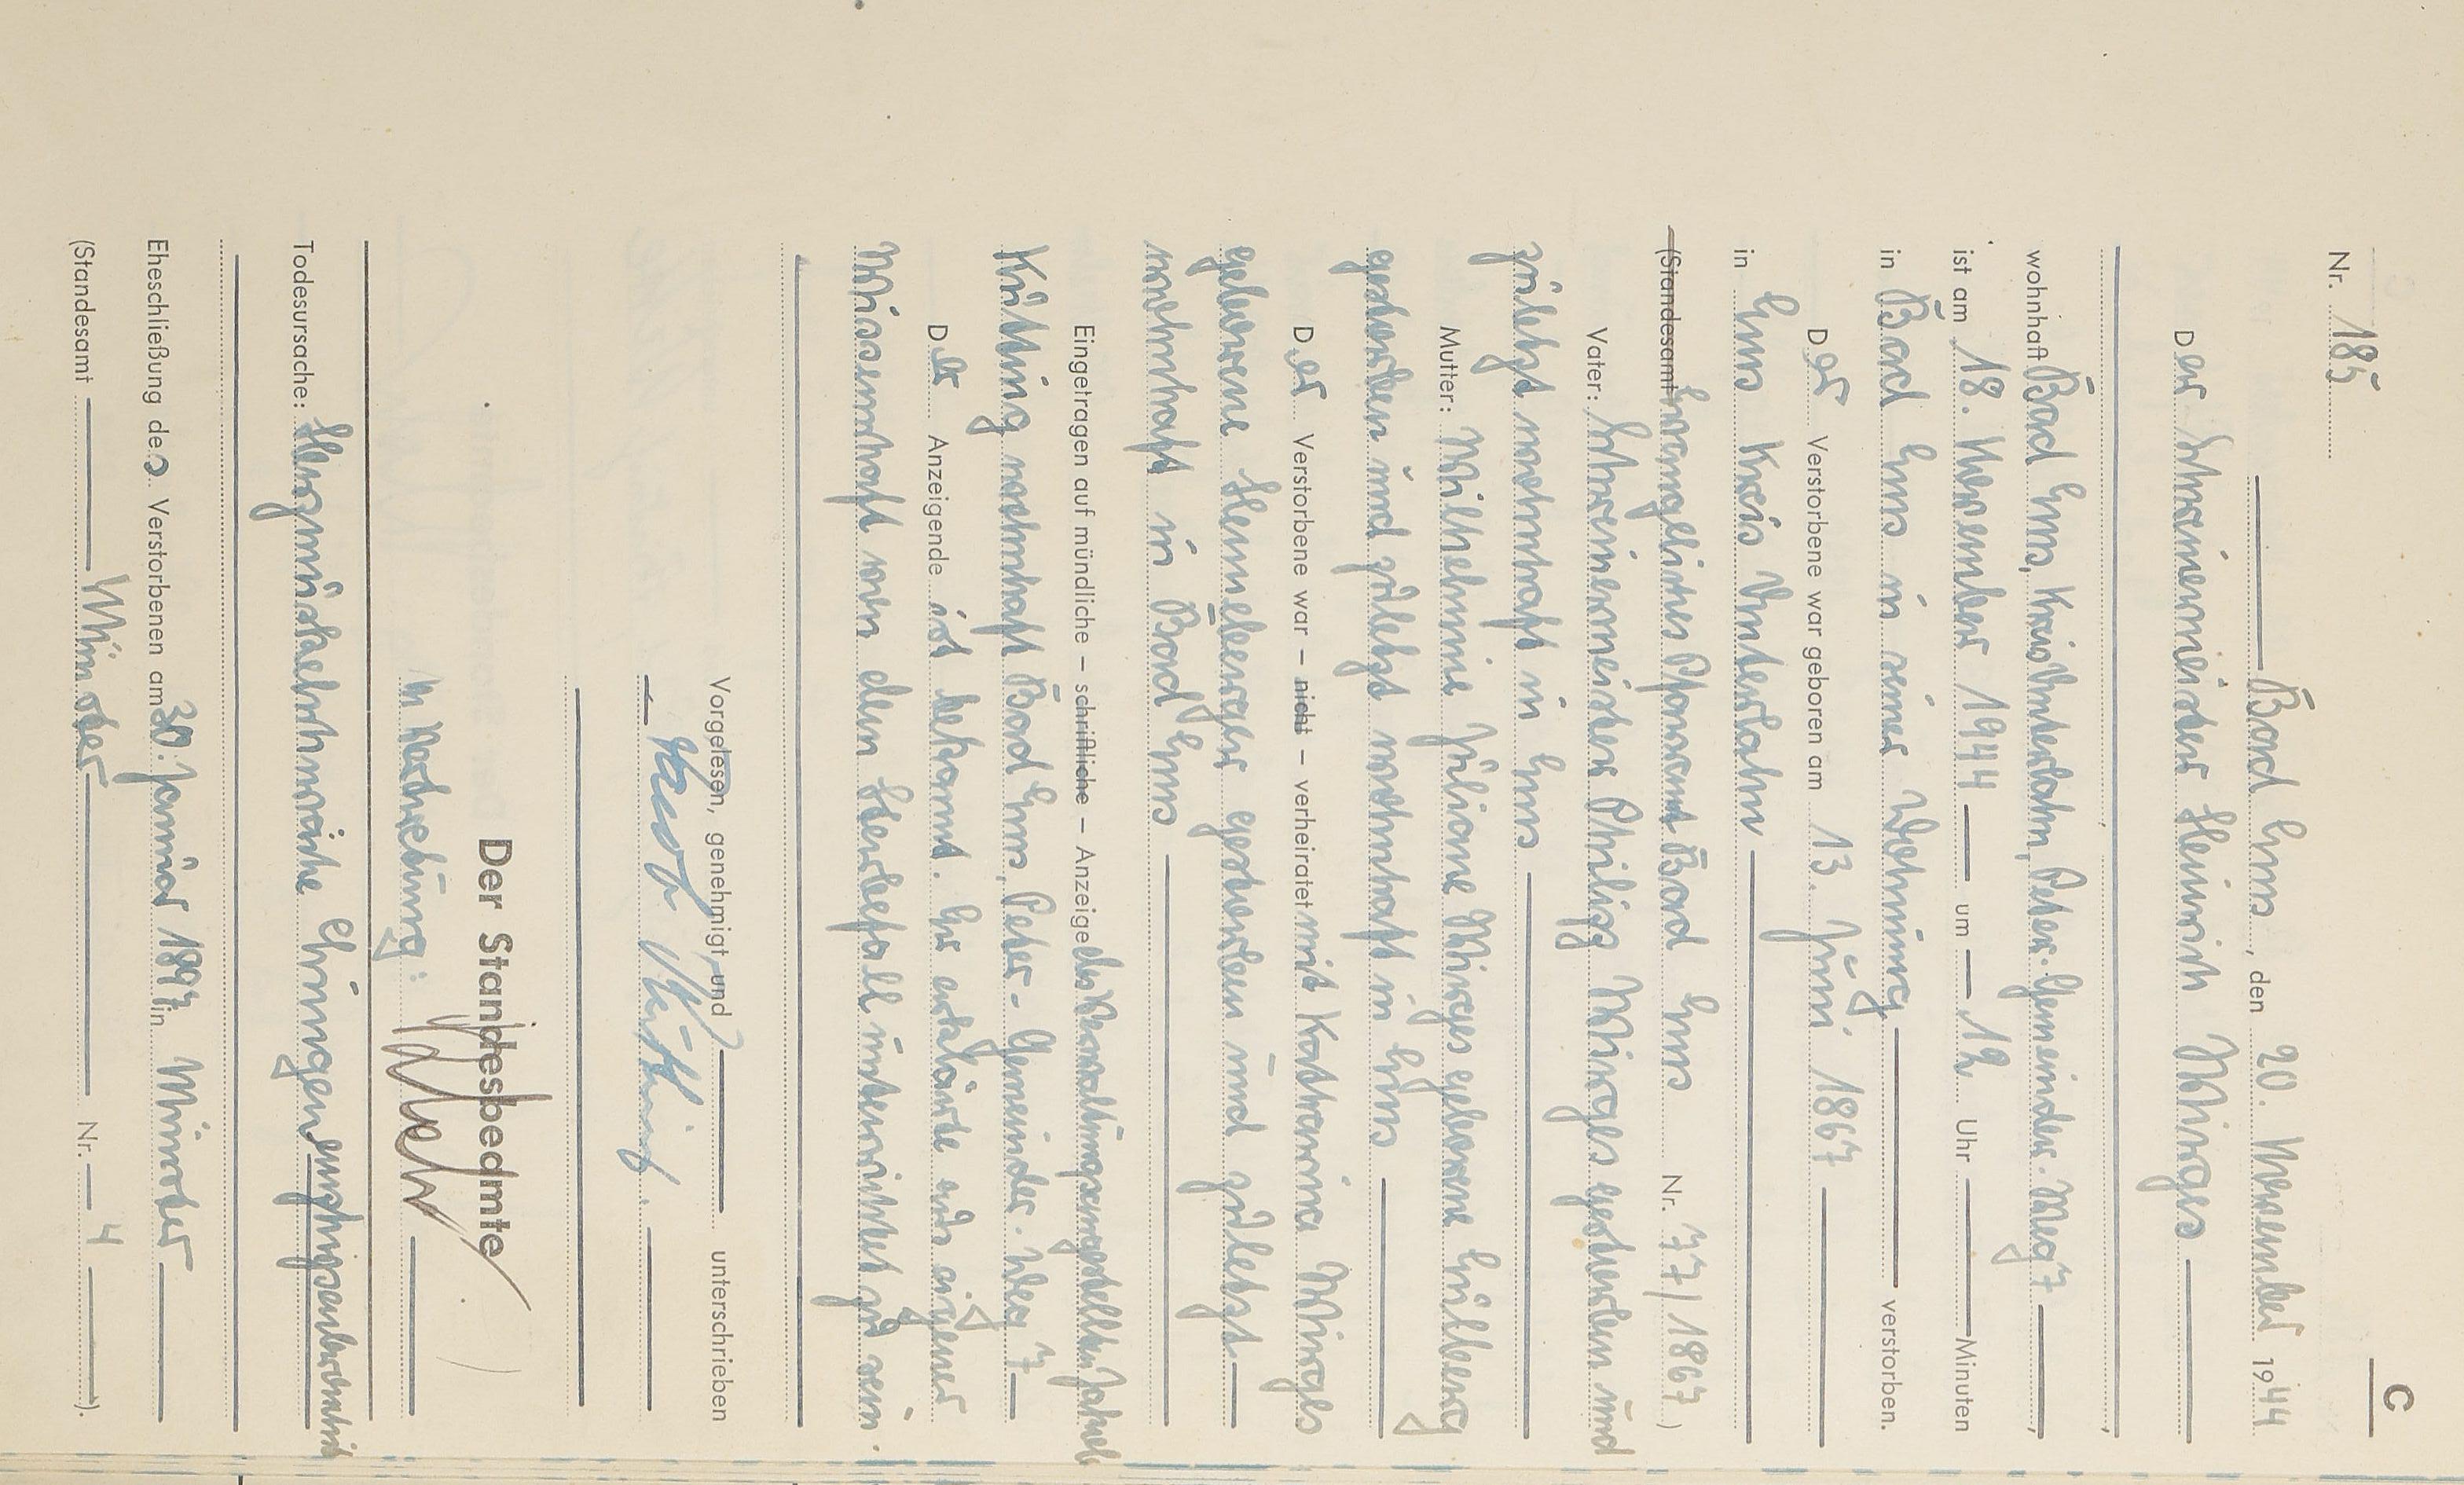 C
Nr. 185
Bad Ems, den 20. November 1944
Der Schreinermeister Heinrich Wirges
wohnhaft Bad Ems, Kreis Unterlahn, Peter-Gemeinder-Weg 7,
ist am 18. November 1944 um 12 Uhr Minuten
in Bad Ems in seiner Wohnung verstorben.
Der Verstorbene war geboren am 13. Juni 1867
in Ems Kreis Unterlahn
(Standesamt Evangelisches Pfarramt Bad Ems Nr. 77/1867)
Vater: Schreinermeister Philipp Wirges gestorben und
zuletzt wohnhaft in Ems
Mutter: Wilhelmine Juliane Wirges geborene
gestorben und zuletzt wohnhaft in Ems
Der Verstorbene war – nicht – verheiratet mit Katharina Wirges
geborene gestorben und zuletzt
wohnhaft in Bad Ems
Eingetragen auf mündliche – schriftliche – Anzeige des Verwaltungsangestellten Jakob
wohnhaft Bad Ems, Peter-Gemeinder-Weg 7
Der Anzeigende ist bekannt. Er erklärte aus eigener
Wissenschaft von dem Sterbefall unterrichtet zu sein.
Vorgelesen, genehmigt und unterschrieben
Jakob
Der Standesbeamte
In Vertretung:
Todesursache: Herzmuskelschwäche Lungenemphysembronchitis
Eheschließung des Verstorbenen am 30. Januar 1897 in Münster
(Standesamt Münster Nr. 4).